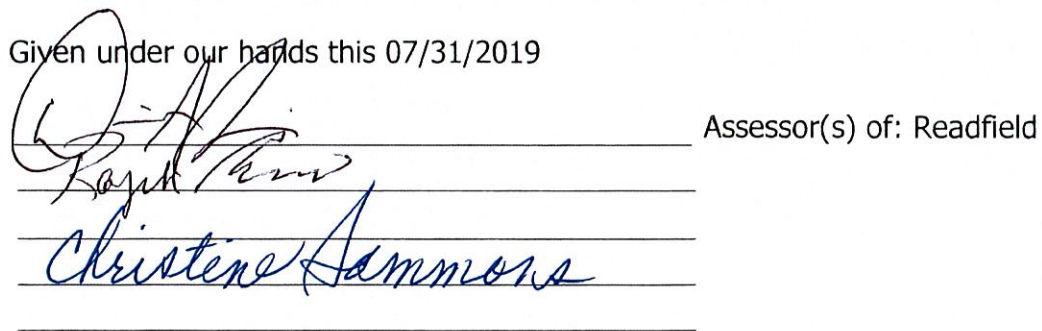 Given under our hands this 07/31/2019
Assessor(s) of: Readfield
Christine Sammons